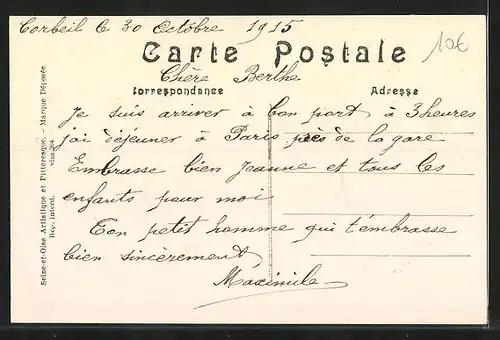 Corbeil le 30 Octobre 1915
10€
Carte Postale
Chère Berthe
Correspondance
Adresse
Je suis arriver à bon port à 3 heures
j'ai déjeuner à Paris près de la gare
Embrasse bien Jeanne et tous les
enfants pour moi
Ton petit homme qui t'embrasse
bien sincèrement
Maximile
Seine-et-Oise Artistique et Pittoresque. - Marque Déposée
Rep. interd.